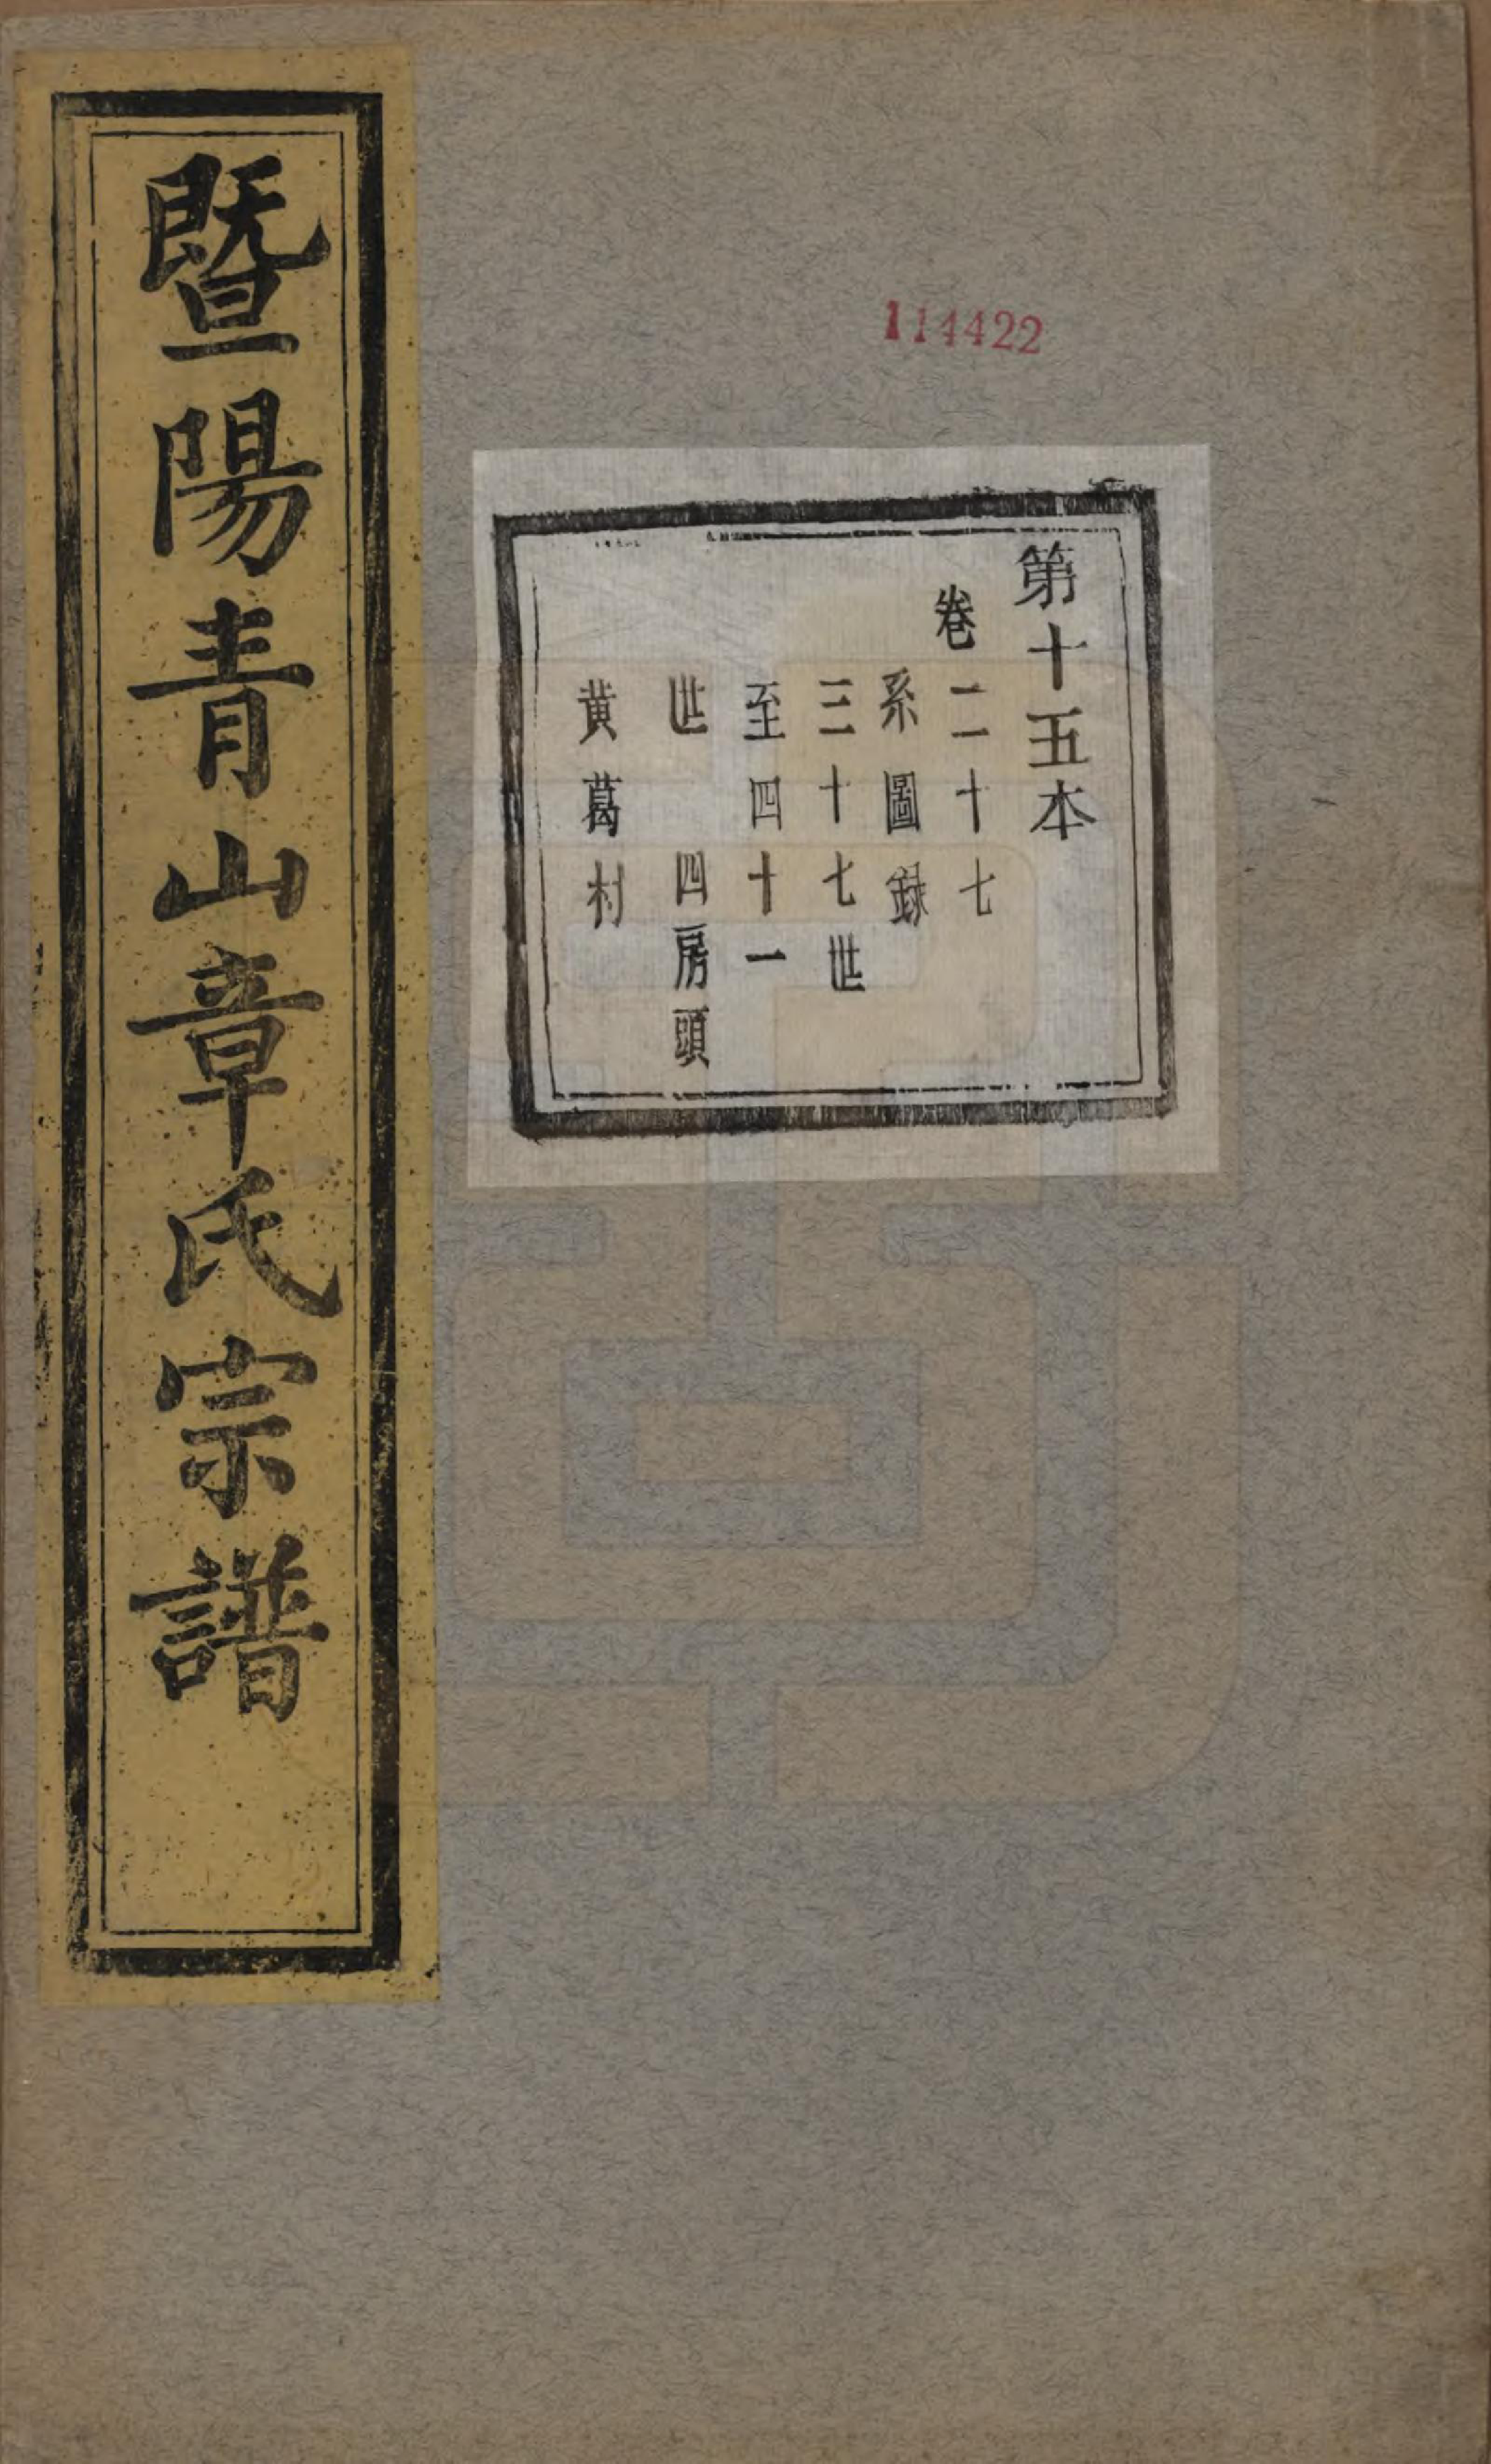 暨陽青山章氏宗譜
114422
第十五本
卷二十七
系圖錄
三十七世
至四十一
世　四房頭
黄葛村